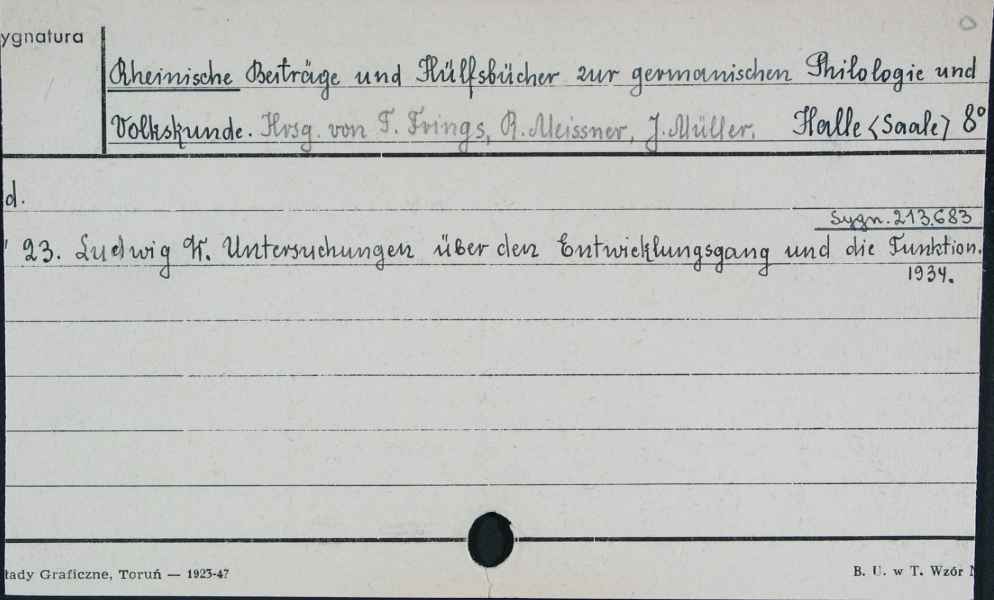 ygnatura
Rheinische Beiträge und Hülfsbücher zur germanischen Philologie und
Volkskunde. Hrsg. von T. Frings, R. Meissner, J. Müller. Halle <Saale> 8°
d.
Sygn. 213.683
23. Ludwig W. Untersuchungen über den Entwicklungsgang und die Funktion.
1934.
łady Graficzne, Toruń — 1923-47
B. U. w T. Wzór